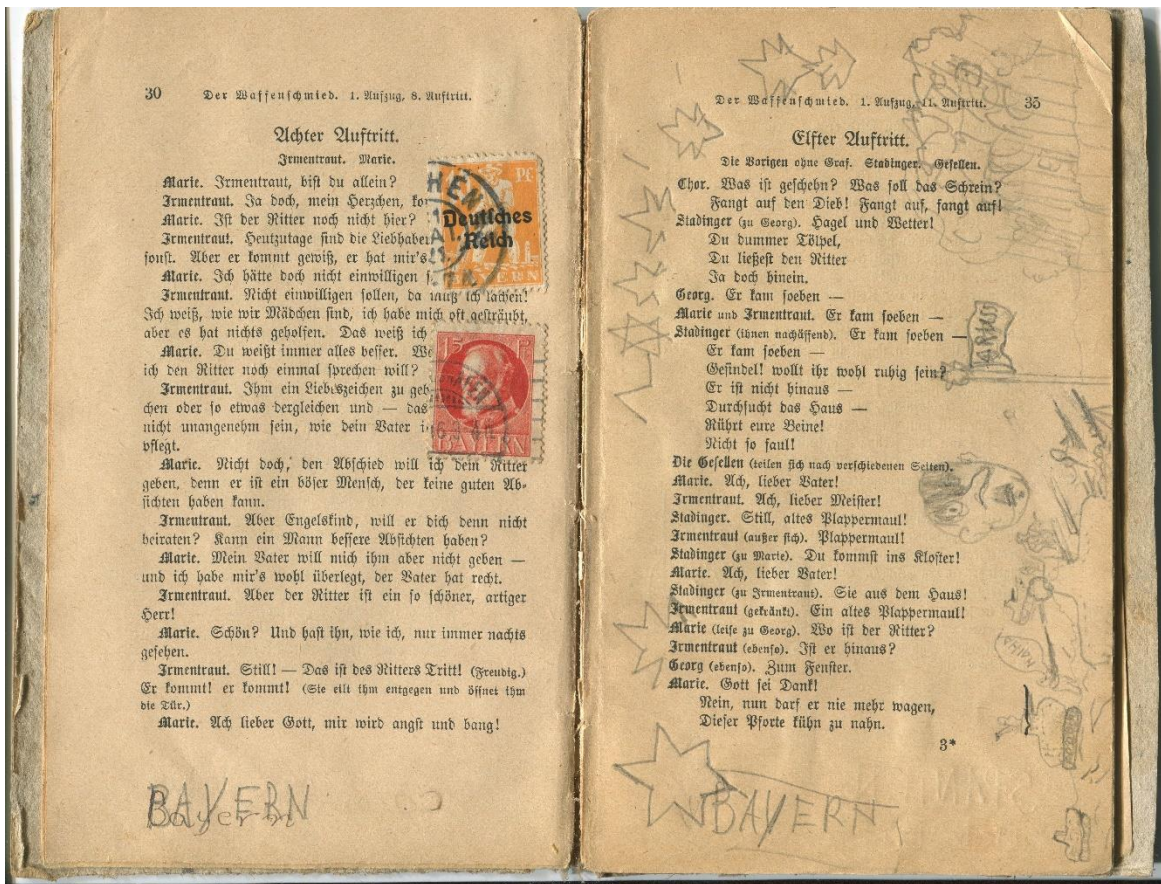 30 Der Waffenschmied. 1. Aufzug, 8. Auftritt.
Achter Auftritt.
Irmentraut. Marie.
Marie. Irmentraut, bist du allein?
Irmentraut. Ja doch, mein Herzchen,
Marie. Ist der Ritter noch nicht hier?
Irmentraut. Heutzutage sind die Liebhaber
sonst. Aber er kommt gewiß, er hat mir's
Marie. Ich hätte doch nicht einwilligen
Irmentraut. Nicht einwilligen sollen, da muß ich lachen!
Ich weiß, wie wir Mädchen sind, ich habe mich oft gesträubt,
aber es hat nichts geholfen. Das weiß ich
Marie. Du weißt immer alles besser.
ich den Ritter noch einmal sprechen will?
Irmentraut. Ihm ein Liebeszeichen zu geb
chen oder so etwas dergleichen und — das
nicht unangenehm sein, wie dein Vater
pflegt.
Marie. Nicht doch, den Abschied will ich dem Ritter
geben, denn er ist ein böser Mensch, der keine guten Ab-
sichten haben kann.
Irmentraut. Aber Engelskind, will er dich denn nicht
heiraten? Kann ein Mann bessere Absichten haben?
Marie. Mein Vater will mich ihm aber nicht geben —
und ich habe mir's wohl überlegt, der Vater hat recht.
Irmentraut. Aber der Ritter ist ein so schöner, artiger
Herr!
Marie. Schön? Und hast ihn, wie ich, nur immer nachts
gesehen.
Irmentraut. Still! — Das ist des Ritters Tritt! (Freudig.)
Er kommt! er kommt! (Sie eilt ihm entgegen und öffnet ihm
die Tür.)
Marie. Ach lieber Gott, mir wird angst und bang!
BAYERN
Bayern
HEN
Pf
Deutsches
Reich
BAYERN
15 Pf
BAYERN
Der Waffenschmied. 1. Aufzug, 11. Auftritt. 35
Elfter Auftritt.
Die Vorigen ohne Graf. Stadinger. Gesellen.
Chor. Was ist geschehn? Was soll das Schrein?
Fangt auf den Dieb! Fangt auf, fangt auf!
Stadinger (zu Georg). Hagel und Wetter!
Du dummer Tölpel,
Du ließest den Ritter
Ja doch hinein.
Georg. Er kam soeben —
Marie und Irmentraut. Er kam soeben —
Stadinger (ihnen nachäffend). Er kam soeben —
Er kam soeben —
Gesindel! wollt ihr wohl ruhig sein?
Er ist nicht hinaus —
Durchsucht das Haus —
Rührt eure Beine!
Nicht so faul!
Die Gesellen (teilen sich nach verschiedenen Seiten).
Marie. Ach, lieber Vater!
Irmentraut. Ach, lieber Meister!
Stadinger. Still, altes Plappermaul!
Irmentraut (außer sich). Plappermaul!
Stadinger (zu Marie). Du kommst ins Kloster!
Marie. Ach, lieber Vater!
Stadinger (zu Irmentraut). Sie aus dem Haus!
Irmentraut (gekränkt). Ein altes Plappermaul!
Marie (leise zu Georg). Wo ist der Ritter?
Irmentraut (ebenso). Ist er hinaus?
Georg (ebenso). Zum Fenster.
Marie. Gott sei Dank!
Nein, nun darf er nie mehr wagen,
Dieser Pforte kühn zu nahn.
3*
BAYERN